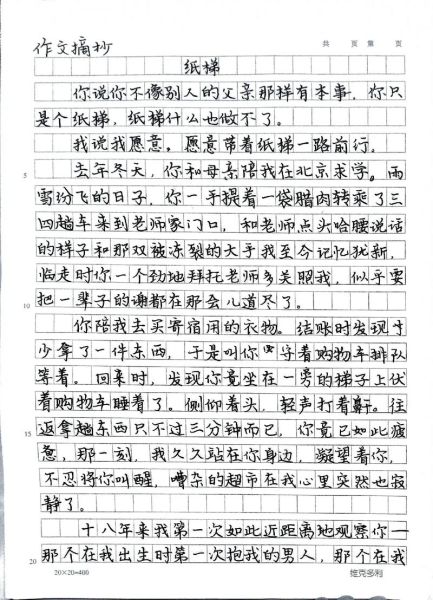 作文摘抄
共 页 第 页
纸梯
你说你不像别人的父亲那样有本事,你只
是个纸梯,纸梯什么也做不了。
我说我愿意。愿意带着纸梯一路前行。
5
去年冬天,你和母亲陪我在北京求学。雨
雪纷飞的日子,你一手提着一袋腊肉转乘了三
四趟车来到老师家门口,和老师点头哈腰说话
的样子和那双被冻裂的大手我至今记忆犹新,
临走时你一个劲地拜托老师多关照我,似乎要
10
把一辈子的谢都在那会儿道尽了。
你陪我去买寄宿用的衣物。结账时发现
少拿了一件东西,于是叫你 守着购物车排队
等着。回来时,发现你竟坐在一旁的梯子上伏
着购物车睡着了。侧仰着头,轻声打着鼾。往
15
返拿趟东西只不过三分钟而已,你竟已如此疲
惫,那一刻,我久久站在你身边,凝望着你,
不忍将你叫醒,嘈杂的超市在我心里突然也寂
静了。
十八年来我第一次如此近距离地观察你一
20
那个在我出生时第一次抱我的男人,那个在我
20×20=400
维克多利